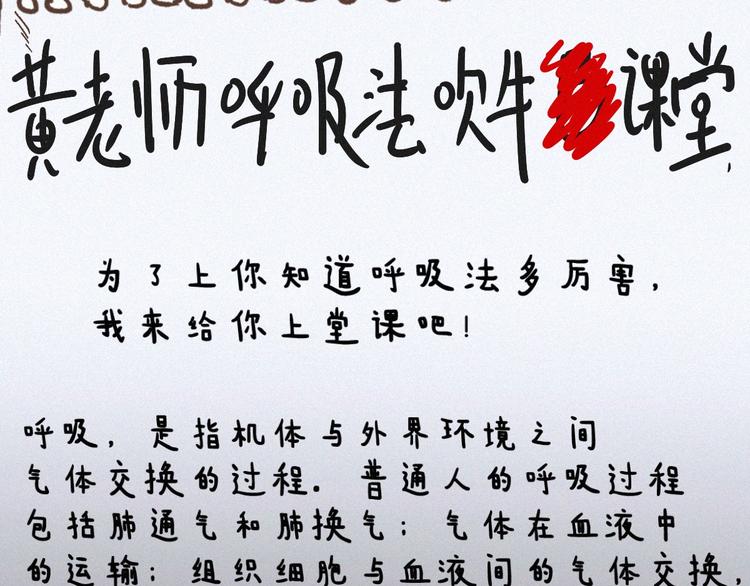 黄老师呼吸法吹牛课堂
为了上你知道呼吸法多厉害，
我来给你上堂课吧！
呼吸，是指机体与外界环境之间
气体交换的过程．普通人的呼吸过程
包括肺通气和肺换气；气体在血液中
的运输；组织细胞与血液间的气体交换．